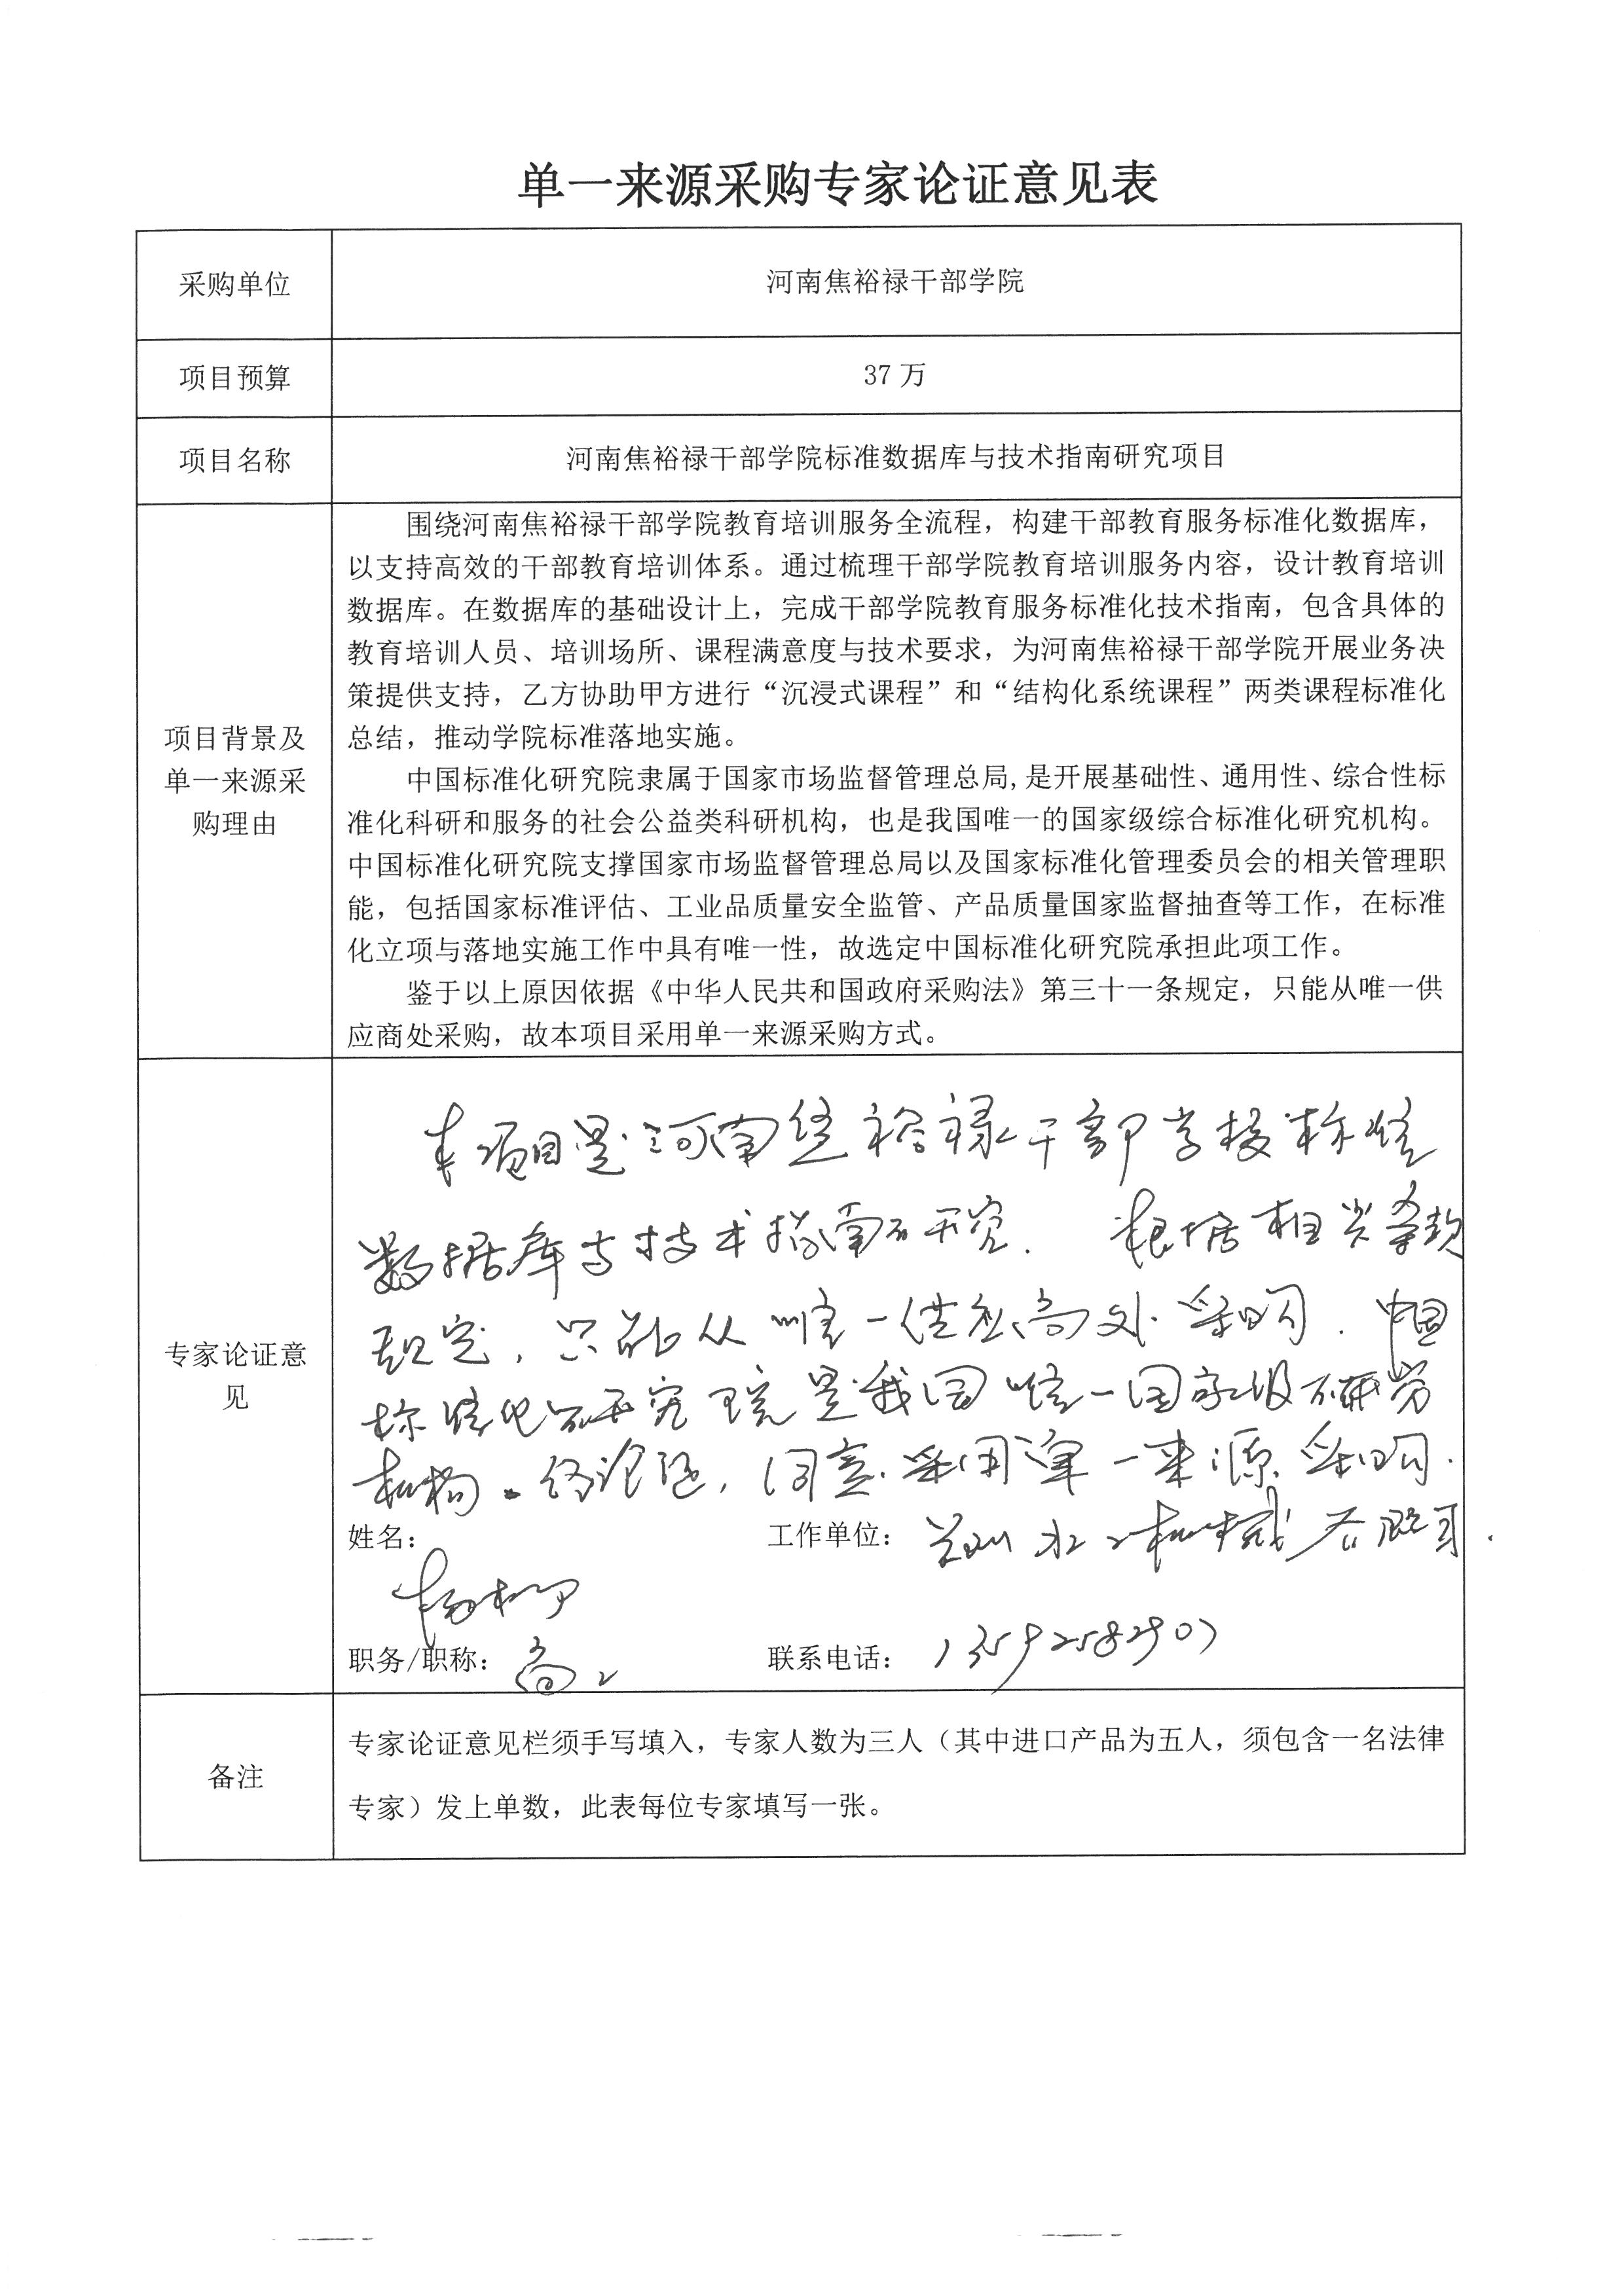 单一来源采购专家论证意见表
采购单位
河南焦裕禄干部学院
项目预算
37 万
项目名称
河南焦裕禄干部学院标准数据库与技术指南研究项目
项目背景及
单一来源采
购理由
围绕河南焦裕禄干部学院教育培训服务全流程，构建干部教育服务标准化数据库，
以支持高效的干部教育培训体系。通过梳理干部学院教育培训服务内容，设计教育培训
数据库。在数据库的基础设计上，完成干部学院教育服务标准化技术指南，包含具体的
教育培训人员、培训场所、课程满意度与技术要求，为河南焦裕禄干部学院开展业务决
策提供支持，乙方协助甲方进行“沉浸式课程”和“结构化系统课程”两类课程标准化
总结，推动学院标准落地实施。
中国标准化研究院隶属于国家市场监督管理总局,是开展基础性、通用性、综合性标
准化科研和服务的社会公益类科研机构，也是我国唯一的国家级综合标准化研究机构。
中国标准化研究院支撑国家市场监督管理总局以及国家标准化管理委员会的相关管理职
能，包括国家标准评估、工业品质量安全监管、产品质量国家监督抽查等工作，在标准
化立项与落地实施工作中具有唯一性，故选定中国标准化研究院承担此项工作。
鉴于以上原因依据《中华人民共和国政府采购法》第三十一条规定，只能从唯一供
应商处采购，故本项目采用单一来源采购方式。
专家论证意
见
本项目是河南焦裕禄干部学校标准
数据库与技术指南研究. 根据相关条款
规定，只能从唯一供应商处采购. 中国
标准化研究院是我国唯一国家级研究
机构。经论证，同意采用单一来源采购.
姓名：
工作单位：郑州水工机械有限公司.
杨
职务/职称：高工
联系电话：13592582907
备注
专家论证意见栏须手写填入，专家人数为三人（其中进口产品为五人，须包含一名法律
专家）发上单数，此表每位专家填写一张。